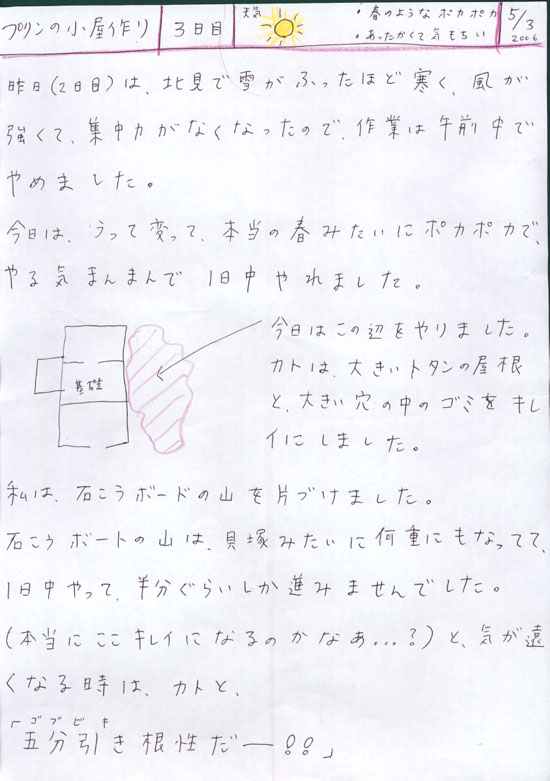 プリンの小屋作り 3日目 天気 ・春のようなポカポカ ・あったかくて気もちい 5/3 2006
昨日(2日目)は、北見で雪がふったほど寒く、風が
強くて、集中力がなくなったので、作業は午前中で
やめました。
今日は、うって変って、本当の春みたいにポカポカで、
やる気まんまんで1日中やれました。
基礎
今日はこの辺をやりました。
カトは、大きいトタンの屋根
と、大きい穴の中のゴミをキレ
イにしました。
私は、石こうボードの山を片づけました。
石こうボートの山は、貝塚みたいに何重にもなってて、
1日中やって、半分ぐらいしか進みませんでした。
(本当にここキレイになるのかなぁ...?)と、気が遠
くなる時は、カトと、
ゴブビキ
「五分引き根性だー!!」